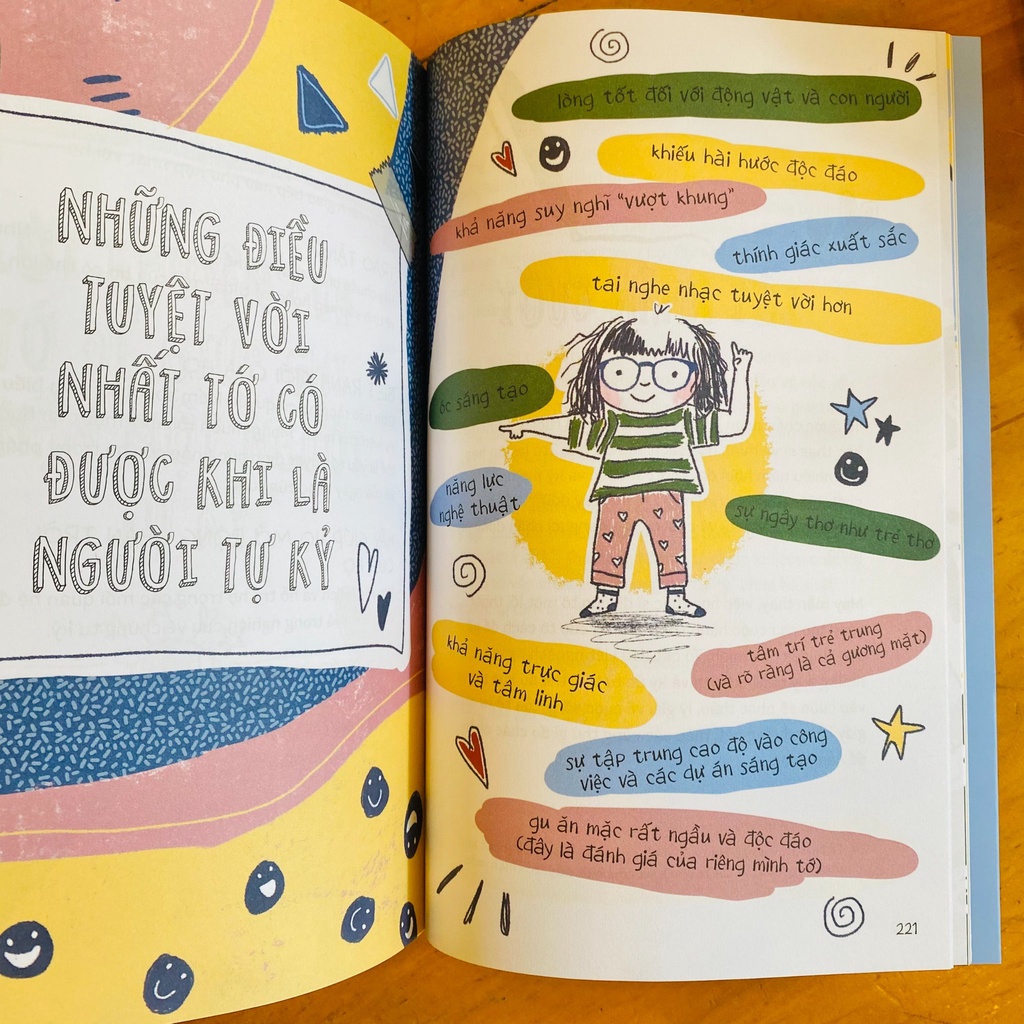 NHỮNG ĐIỀU
TUYỆT VỜI
NHẤT TỚ CÓ
ĐƯỢC KHI LÀ
NGƯỜI TỰ KỶ
lòng tốt đối với động vật và con người
khiếu hài hước độc đáo
khả năng suy nghĩ “vượt khung”
thính giác xuất sắc
tai nghe nhạc tuyệt vời hơn
óc sáng tạo
năng lực
nghệ thuật
sự ngây thơ như trẻ thơ
khả năng trực giác
và tâm linh
tâm trí trẻ trung
(và rõ ràng là cả gương mặt)
sự tập trung cao độ vào công
việc và các dự án sáng tạo
gu ăn mặc rất ngầu và độc đáo
(đây là đánh giá của riêng mình tớ)
221